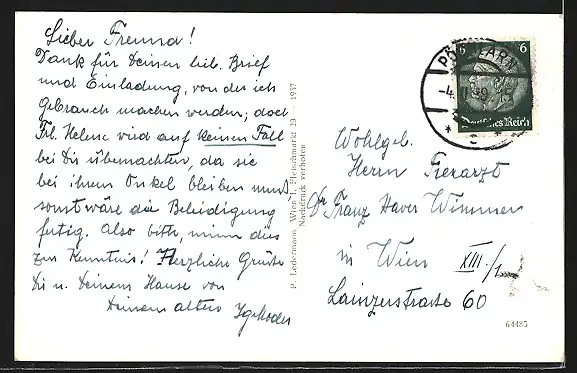 Lieber Freund!
Dank für Deinen lieb. Brief
und Einladung, von der ich
Gebrauch machen werden; doch
Frl. Helene wird auf keinen Fall
bei Dir übernachten, da sie
bei ihrem Onkel bleiben muss
sonst wäre die Beleidigung
fertig. Also bitte, nimm dies
zur Kenntnis! Herzliche Grüsse
Dir u. Deinem Hause von
Deinem alten
P. Ledermann, Wien I, Fleischmarkt 20 — 1937
Nachdruck verboten
6 6
Deutsches Reich
PÖCHLARN
Wohlgeb.
Herrn Tierarzt
Dr Franz Xaver Wimmer
in Wien XIII./1
Lainzerstrasse 60
64485